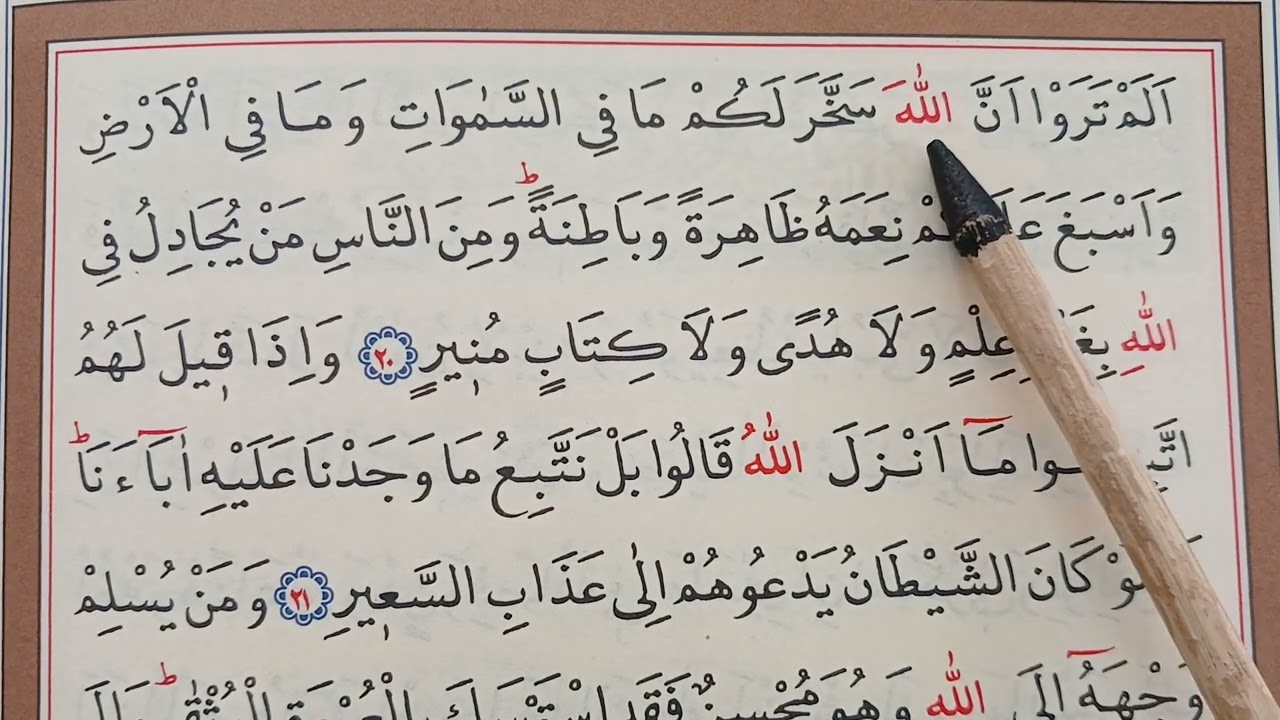 اَلَمْ تَرَوْا اَنَّ اللّٰهَ سَخَّرَ لَكُمْ مَا فِي السَّمٰوَاتِ وَمَا فِي الْاَرْضِ
وَاَسْبَغَ نِعَمَهُ ظَاهِرَةً وَبَاطِنَةًۜ وَمِنَ النَّاسِ مَنْ يُجَادِلُ فِي
اللّٰهِ عِلْمٍ وَلَا هُدًى وَلَا كِتَابٍ مُنٖيرٍ ﴿٢٠﴾ وَاِذَا قٖيلَ لَهُمُ
مَٓا اَنْزَلَ اللّٰهُ قَالُوا بَلْ نَتَّبِعُ مَا وَجَدْنَا عَلَيْهِ اٰبَٓاءَنَاۜ
كَانَ الشَّيْطَانُ يَدْعُوهُمْ اِلٰى عَذَابِ السَّعٖيرِ ﴿٢١﴾ وَمَنْ يُسْلِمْ
وَجْهَهُٓ اِلَى اللّٰهِ وَهُوَ مُحْسِنٌ فَقَدِ اسْتَمْسَكَ بِالْعُرْوَةِ الْوُثْقٰىۜ وَاِلَى